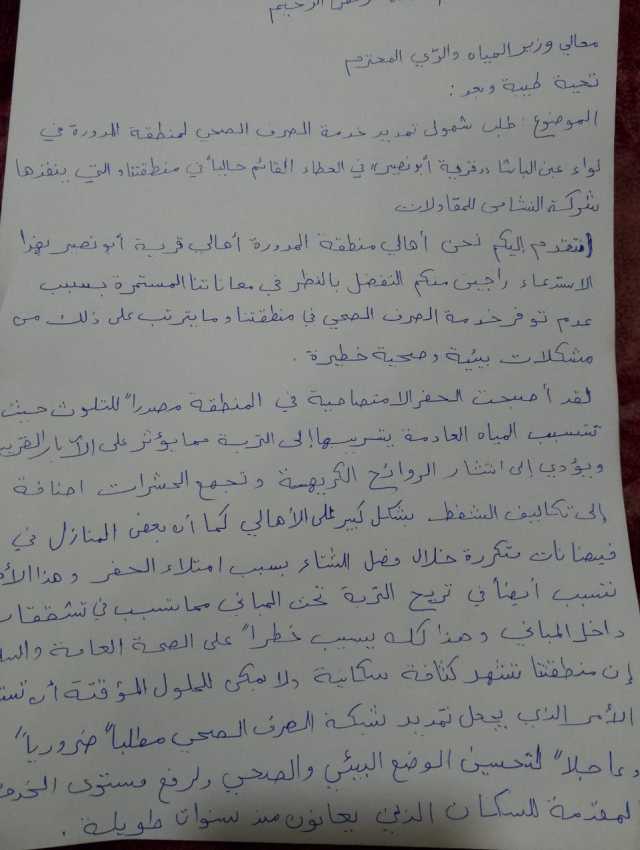 الرحيم
معالي وزير المياه والري المحترم
تحية طيبة وبعد :
الموضوع : طلب شمول تمديد خدمة الصرف الصحي لمنطقة المدورة في
لواء عين الباشا "قرية أبو نصير" في العطاء القائم حالياً في منطقتنا والتي ينفذها
شركة النشامى للمقاولات
نتقدم إليكم نحن أهالي منطقة المدورة أهالي قرية أبو نصير بهذا
الاستدعاء راجين منكم التفضل بالنظر في معاناتنا المستمرة بسبب
عدم توفر خدمة الصرف الصحي في منطقتنا وما يترتب على ذلك من
مشكلات بيئية وصحية خطيرة .
لقد أصبحت الحفر الامتصاصية في المنطقة مصدراً للتلوث حيث
تتسبب المياه العادمة بتسربها إلى التربة مما يؤثر على الآبار
ويؤدي إلى انتشار الروائح الكريهة وتجمع الحشرات اضافة
إلى تكاليف الشفط بشكل كبير على الأهالي كما أن بعض المنازل في
فيضانات متكررة خلال فصل الشتاء بسبب امتلاء الحفر وهذا
تتسبب أيضاً في تريح التربة تحت المباني مما يتسبب في تشققات
داخل المباني وهذا كله يسبب خطراً على الصحة العامة
إن منطقتنا تشهد كثافة سكانية ولا يمكن للحلول المؤقتة أن
الأمر الذي يجعل تمديد شبكة الصرف الصحي مطلباً ضرورياً
وعاجلاً لتحسين الوضع البيئي والصحي ولرفع مستوى
المقدمة للسكان الذين يعانون منذ سنوات طويلة .